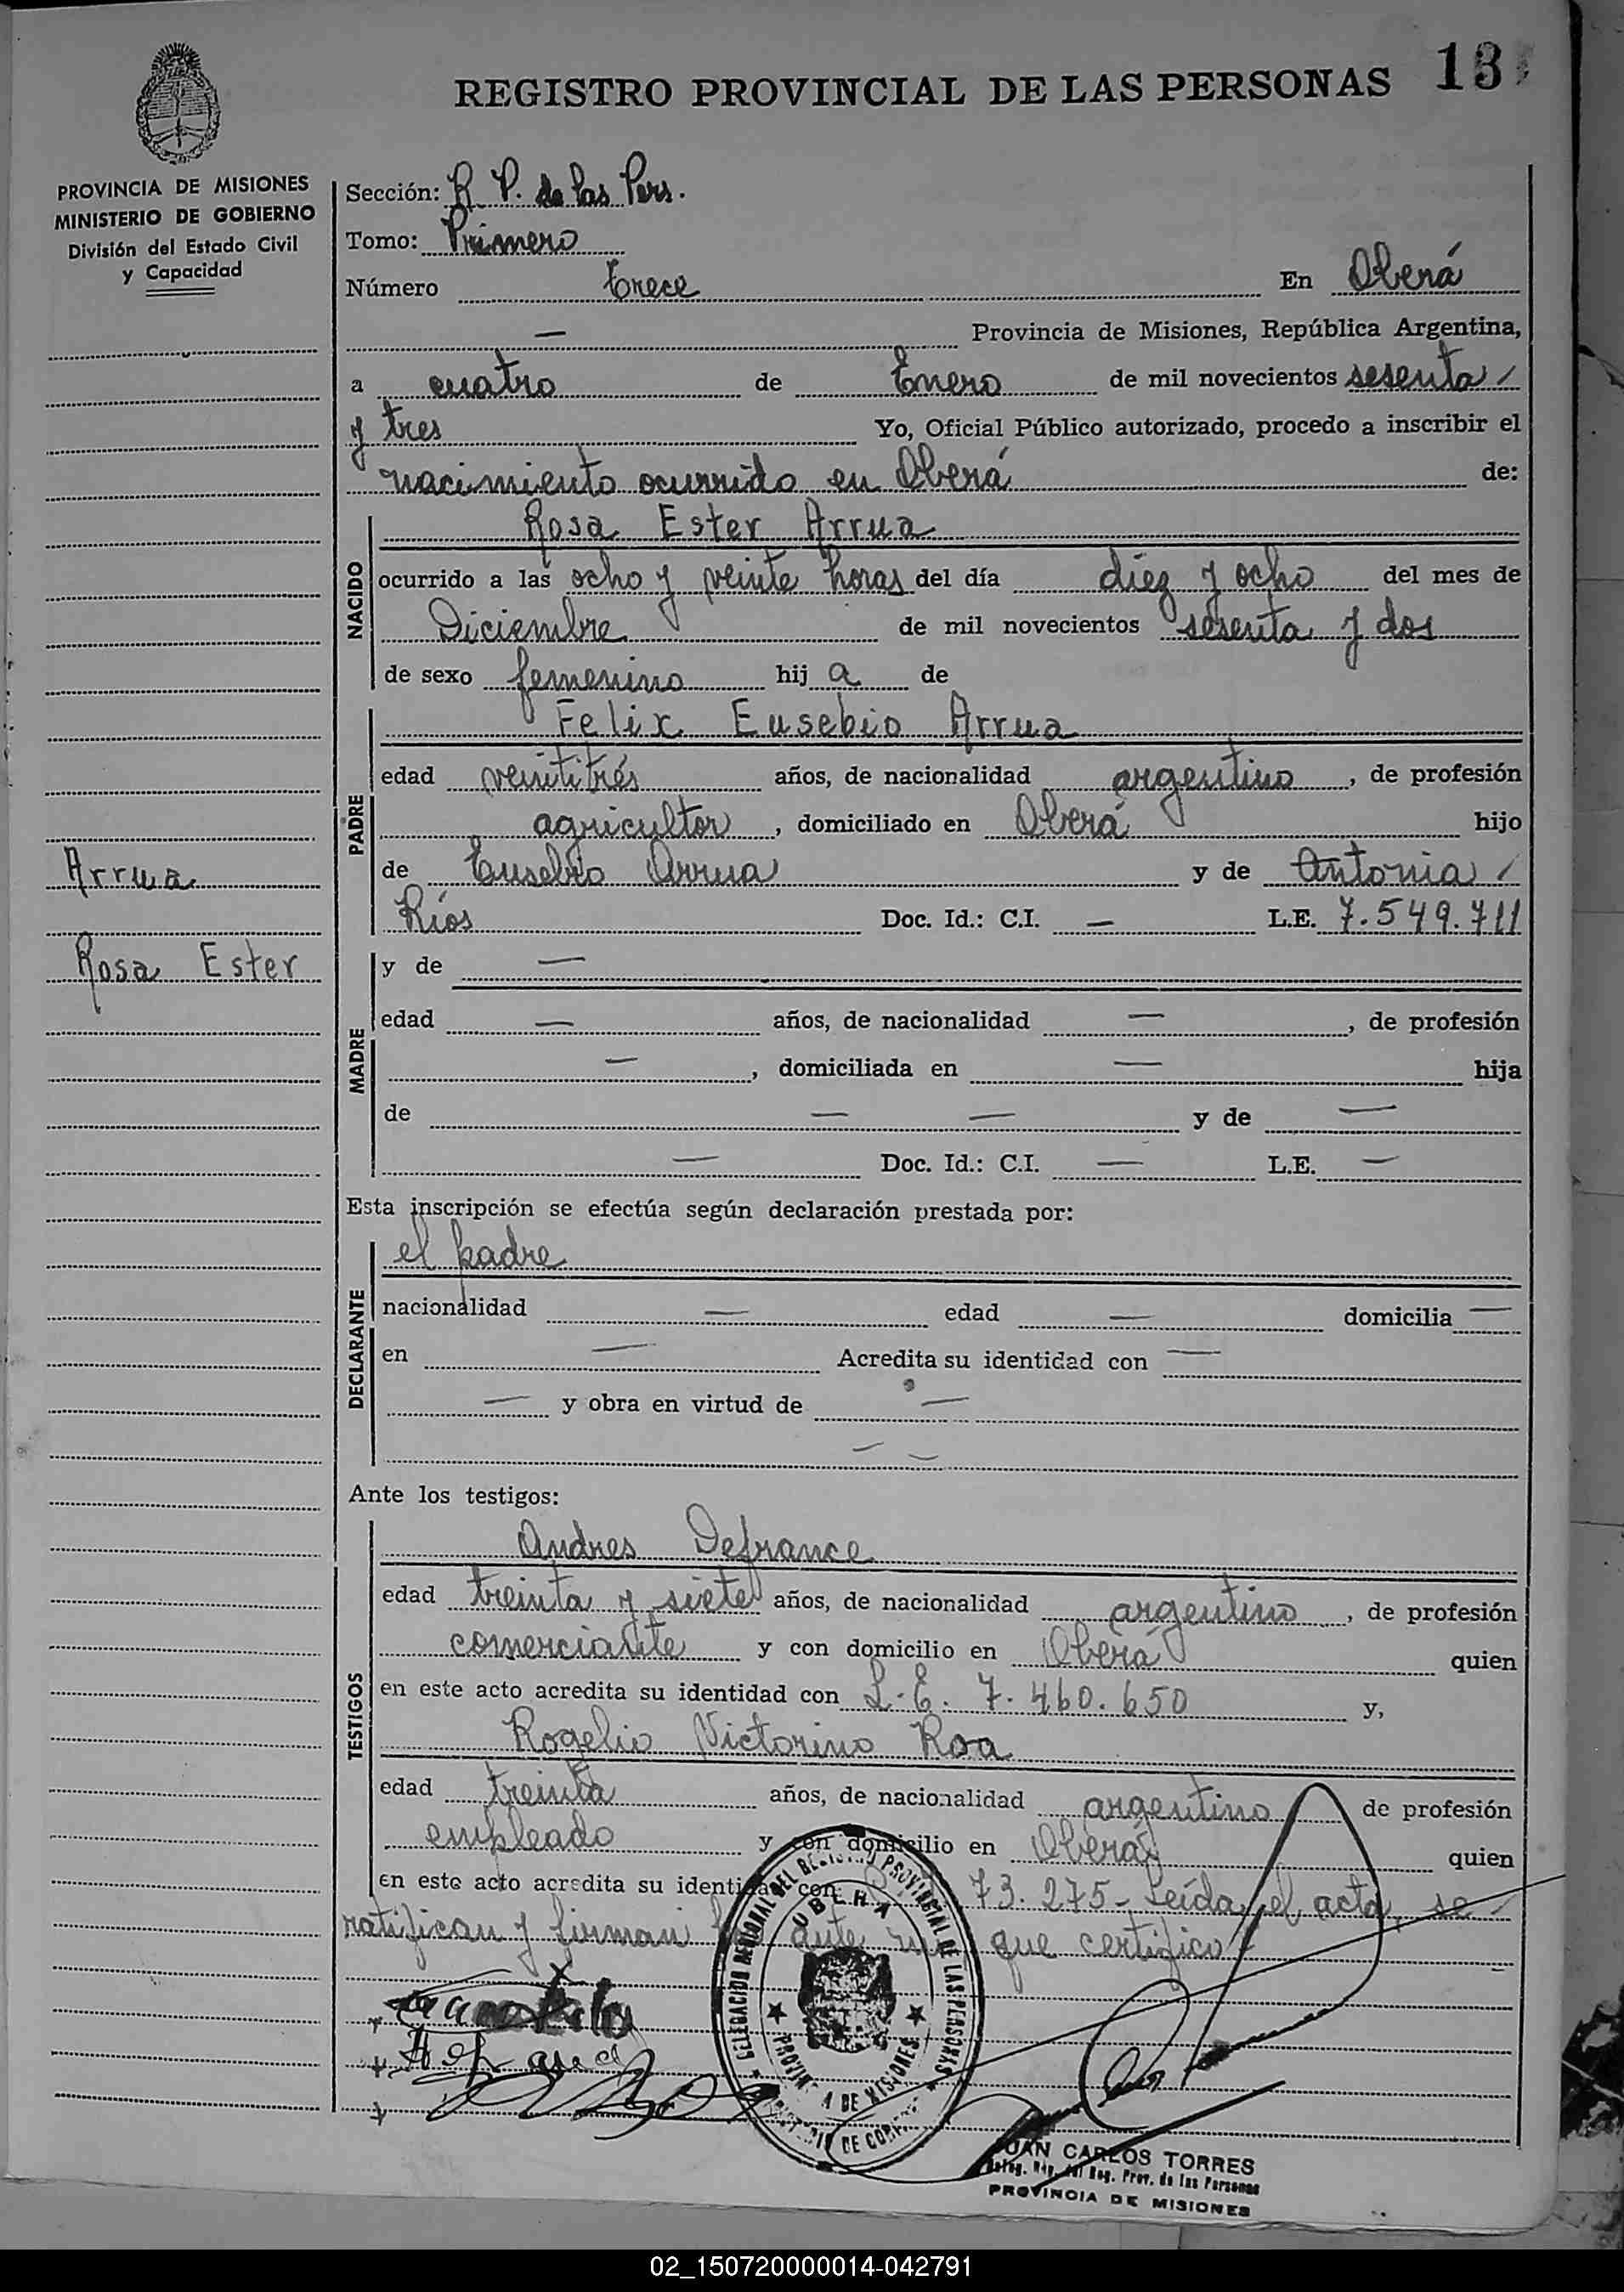 REGISTRO PROVINCIAL DE LAS PERSONAS 13
PROVINCIA DE MISIONES
MINISTERIO DE GOBIERNO
División del Estado Civil
y Capacidad
Sección: R. P. de las Pers.
Tomo: Primero
Número trece En Oberá
— Provincia de Misiones, República Argentina,
a cuatro de Enero de mil novecientos sesenta
y tres Yo, Oficial Público autorizado, procedo a inscribir el
nacimiento ocurrido en Oberá de:
NACIDO
Rosa Ester Arrua
ocurrido a las ocho y veinte horas del día diez y ocho del mes de
Diciembre de mil novecientos sesenta y dos
de sexo femenino hij a de
PADRE
Felix Eusebio Arrua
edad veintitrés años, de nacionalidad argentino, de profesión
agricultor, domiciliado en Oberá hijo
de Eusebio Arrua y de Antonia
Ríos Doc. Id.: C.I. — L.E. 7.549.711
Arrua
Rosa Ester
MADRE
y de —
edad — años, de nacionalidad —, de profesión
—, domiciliada en — hija
de — — y de —
— Doc. Id.: C.I. — L.E. —
Esta inscripción se efectúa según declaración prestada por:
DECLARANTE
el padre
nacionalidad — edad — domicilia —
en — Acredita su identidad con —
— y obra en virtud de —
— —
Ante los testigos:
TESTIGOS
Andres Defrance
edad treinta y siete años, de nacionalidad argentino, de profesión
comerciante y con domicilio en Oberá quien
en este acto acredita su identidad con L.E. 7.460.650 y,
Rogelio Victorino Roa
edad treinta años, de nacionalidad argentino de profesión
empleado y con domicilio en Oberá quien
en este acto acredita su identidad con 73.275- Leída el acta, se
ratifican y firman ante mí que certifico
DELEGACION REGIONAL DEL REGISTRO PROVINCIAL DE LAS PERSONAS
OBERA
PROVINCIA DE MISIONES
MINISTERIO DE GOBIERNO
JUAN CARLOS TORRES
Deleg. Reg. del Reg. Prov. de las Personas
PROVINCIA DE MISIONES
02_150720000014-042791